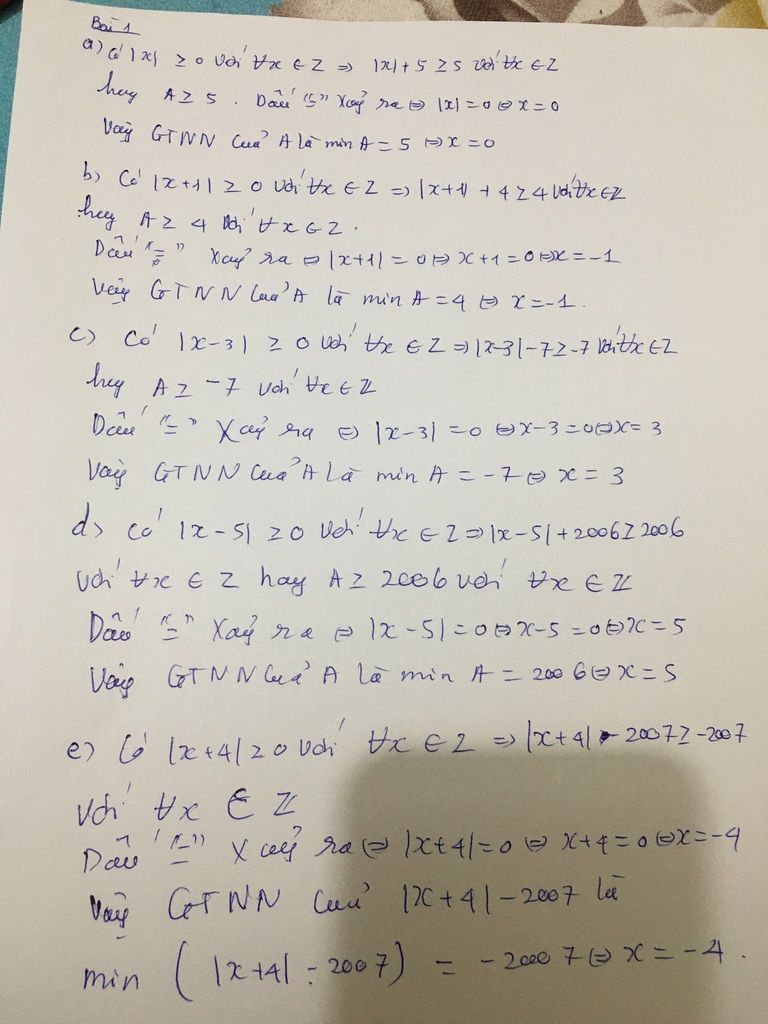 Bài 1
a) Có |x| ≥ 0 với ∀x ∈ Z ⇒ |x| + 5 ≥ 5 với ∀x ∈ Z
hay A ≥ 5. Dấu "=" xảy ra ⇔ |x| = 0 ⇔ x = 0
Vậy GTNN của A là min A = 5 ⇔ x = 0
b) Có |x+1| ≥ 0 với ∀x ∈ Z ⇒ |x+1| + 4 ≥ 4 với ∀x ∈ Z
hay A ≥ 4 với ∀x ∈ Z.
Dấu "=" xảy ra ⇔ |x+1| = 0 ⇔ x+1 = 0 ⇔ x = -1
Vậy GTNN của A là min A = 4 ⇔ x = -1.
c) Có |x-3| ≥ 0 với ∀x ∈ Z ⇒ |x-3| - 7 ≥ -7 với ∀x ∈ Z
hay A ≥ -7 với ∀x ∈ Z
Dấu "=" xảy ra ⇔ |x-3| = 0 ⇔ x-3 = 0 ⇔ x = 3
Vậy GTNN của A là min A = -7 ⇔ x = 3
d) Có |x-5| ≥ 0 với ∀x ∈ Z ⇒ |x-5| + 2006 ≥ 2006
với ∀x ∈ Z hay A ≥ 2006 với ∀x ∈ Z
Dấu "=" xảy ra ⇔ |x-5| = 0 ⇔ x-5 = 0 ⇔ x = 5
Vậy GTNN của A là min A = 2006 ⇔ x = 5
e) Có |x+4| ≥ 0 với ∀x ∈ Z ⇒ |x+4| - 2007 ≥ -2007
với ∀x ∈ Z
Dấu "=" xảy ra ⇔ |x+4| = 0 ⇔ x+4 = 0 ⇔ x = -4
Vậy GTNN của |x+4| - 2007 là
min (|x+4| - 2007) = -2007 ⇔ x = -4.